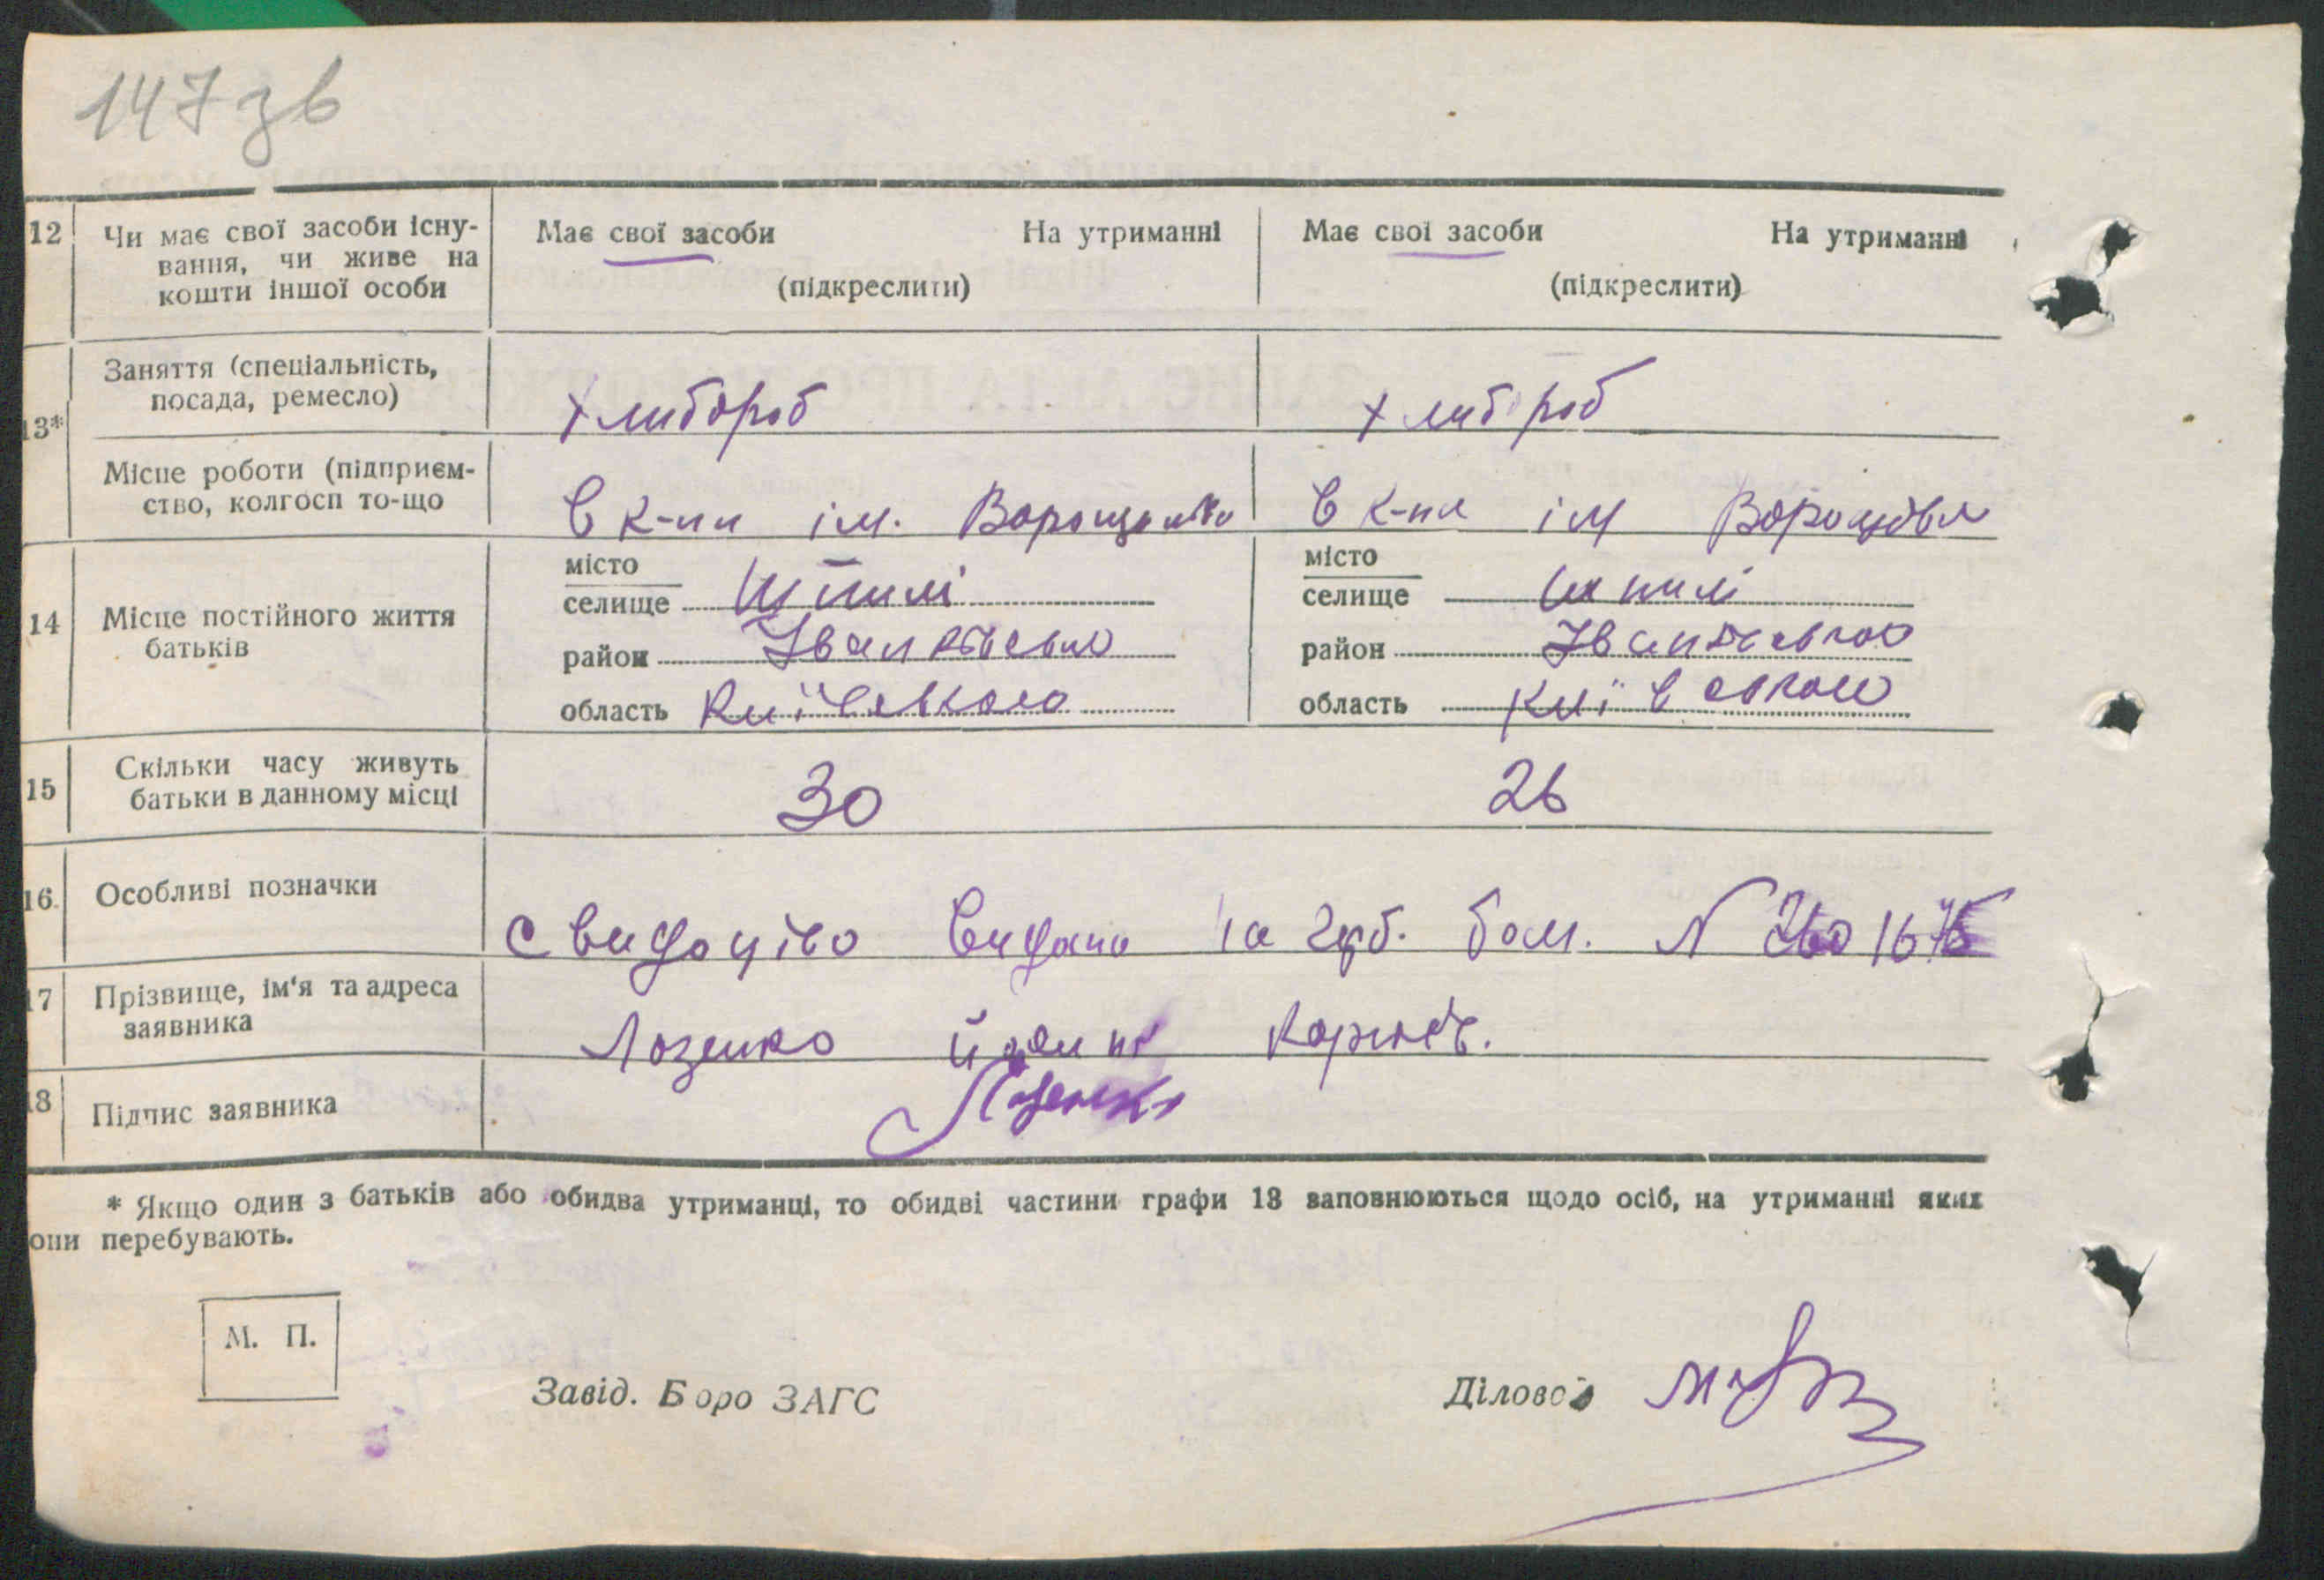 147 зв
12 Чи має свої засоби існу- Має свої засоби На утриманні Має свої засоби На утриманні
вання, чи живе на
кошти іншої особи (підкреслити) (підкреслити)
Заняття (спеціальність,
посада, ремесло) хлибороб хлибороб
13*
Місце роботи (підприєм-
ство, колгосп то-що В к-пи ім. В к-пи ім
місто місто
селище Шпилі селище Шпилі
14 Місце постійного життя
батьків район район
область Київського область Київського
15 Скільки часу живуть
батьки в данному місці 30 26
16. Особливі позначки
Свидоціво Видано за герб. бом. N
17 Прізвище, ім'я та адреса
заявника Лозенко
18 Підпис заявника Лозенко
* Якщо один з батьків або обидва утриманці, то обидві частини графи 13 заповнюються щодо осіб, на утриманні яких
они перебувають.
М. П.
Завід. Бюро ЗАГС Діловод